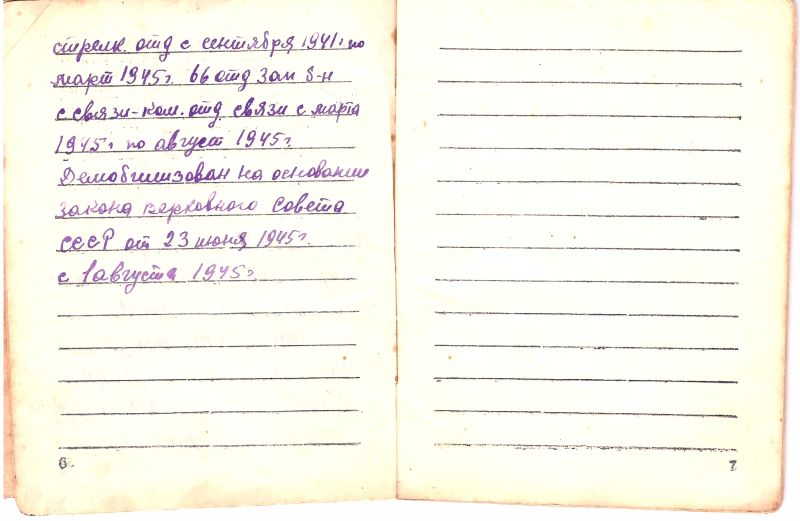 стрелк. отд с сентября 1941г по
март 1945г. 66 отд зап б-н
с связи-ком. отд. связи с марта
1945г по август 1945г.
Демобилизован на основании
Закона верховного Совета
СССР от 23 июня 1945г.
с 1 августа 1945г.
6
7